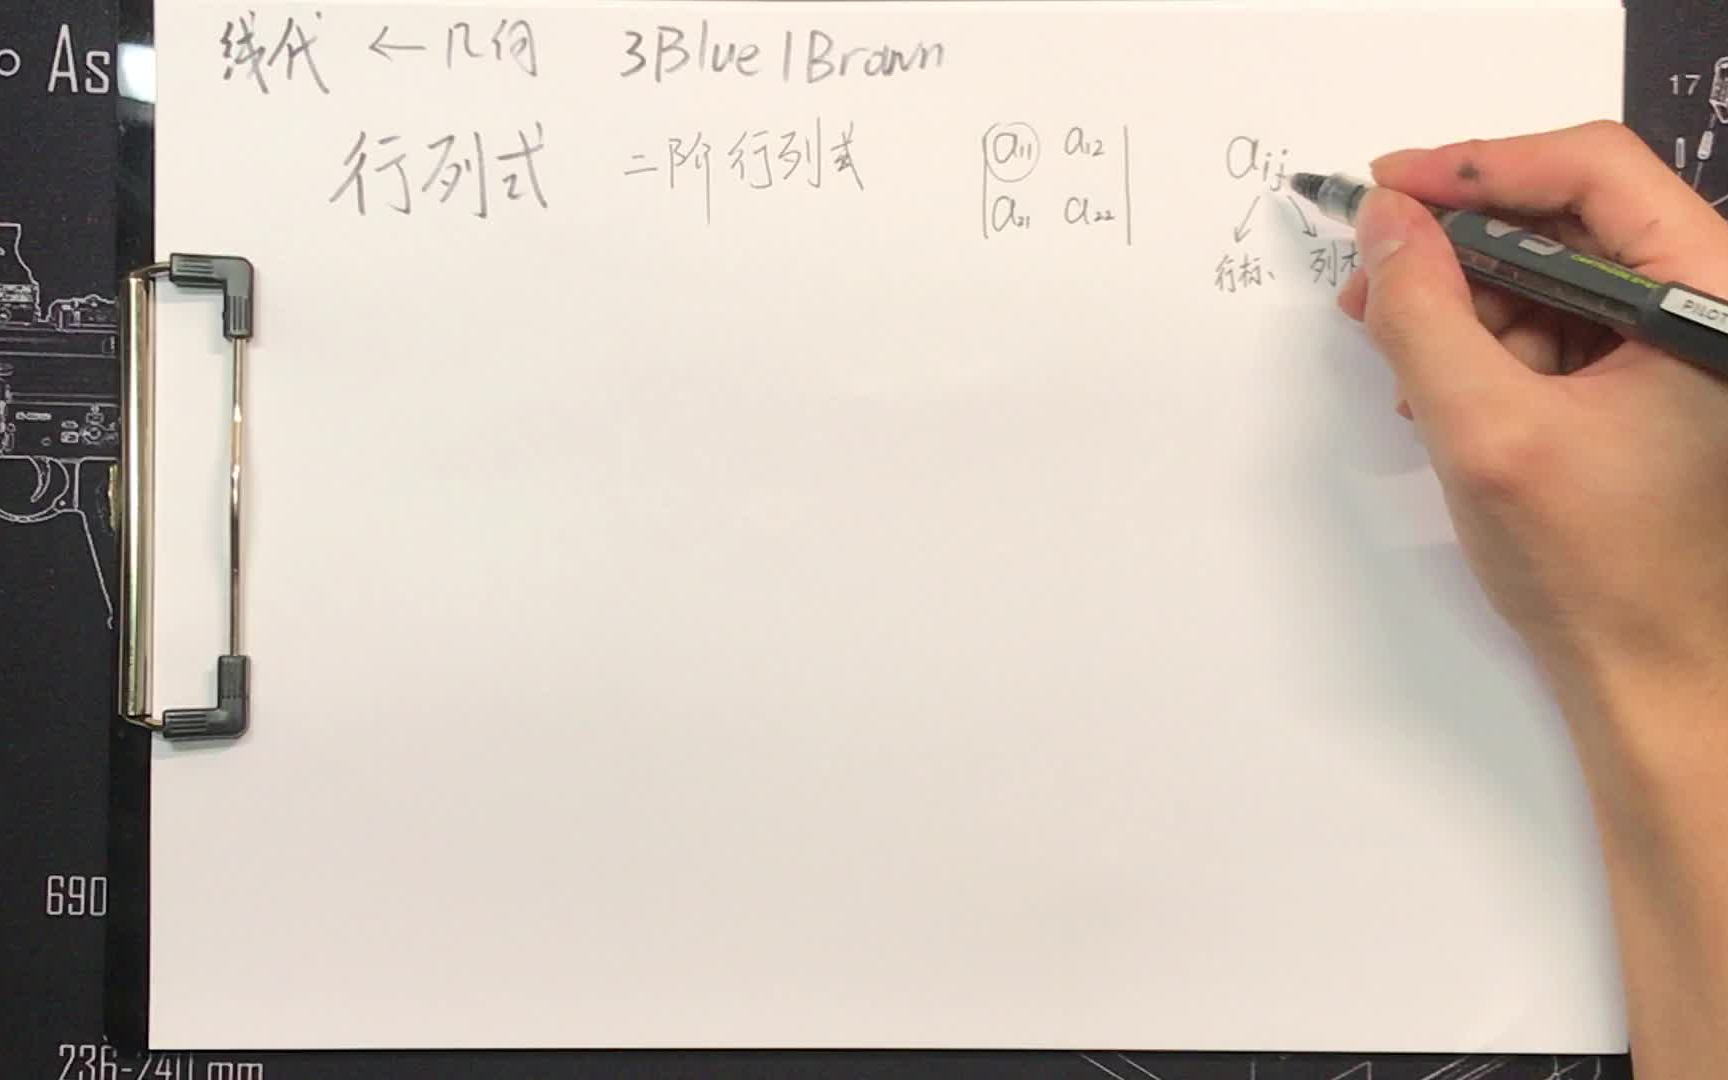 线代 ← 几何 3Blue1Brown
行列式 二阶行列式
a11 a12
a21 a22
aij
行标、 列
As
17
PILOT
690
236-240 mm